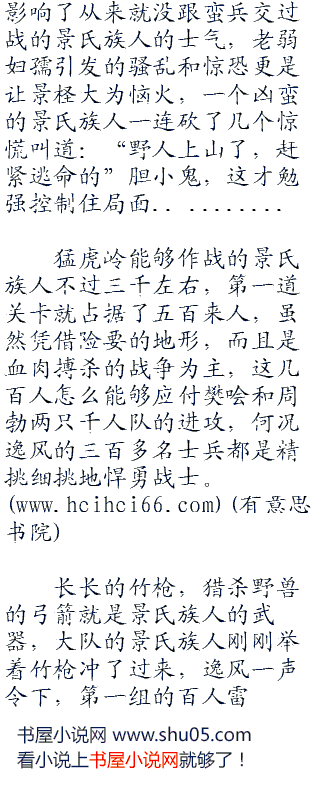 影响了从来就没跟蛮兵交过
战的景氏族人的士气，老弱
妇孺引发的骚乱和惊恐更是
让景柽大为恼火，一个凶蛮
的景氏族人一连砍了几个惊
慌叫道：“野人上山了，赶
紧逃命的”胆小鬼，这才勉
强控制住局面..........
猛虎岭能够作战的景氏
族人不过三千左右，第一道
关卡就占据了五百来人，虽
然凭借险要的地形，而且是
血肉搏杀的战争为主，这几
百人怎么能够应付樊哙和周
勃两只千人队的进攻，何况
逸风的三百多名士兵都是精
挑细挑地悍勇战士。
(www.hcihci66.com)(有意思
书院)
长长的竹枪，猎杀野兽
的弓箭就是景氏族人的武
器，大队的景氏族人刚刚举
着竹枪冲了过来，逸风一声
令下，第一组的百人雷
书屋小说网 www.shu05.com
看小说上书屋小说网就够了！